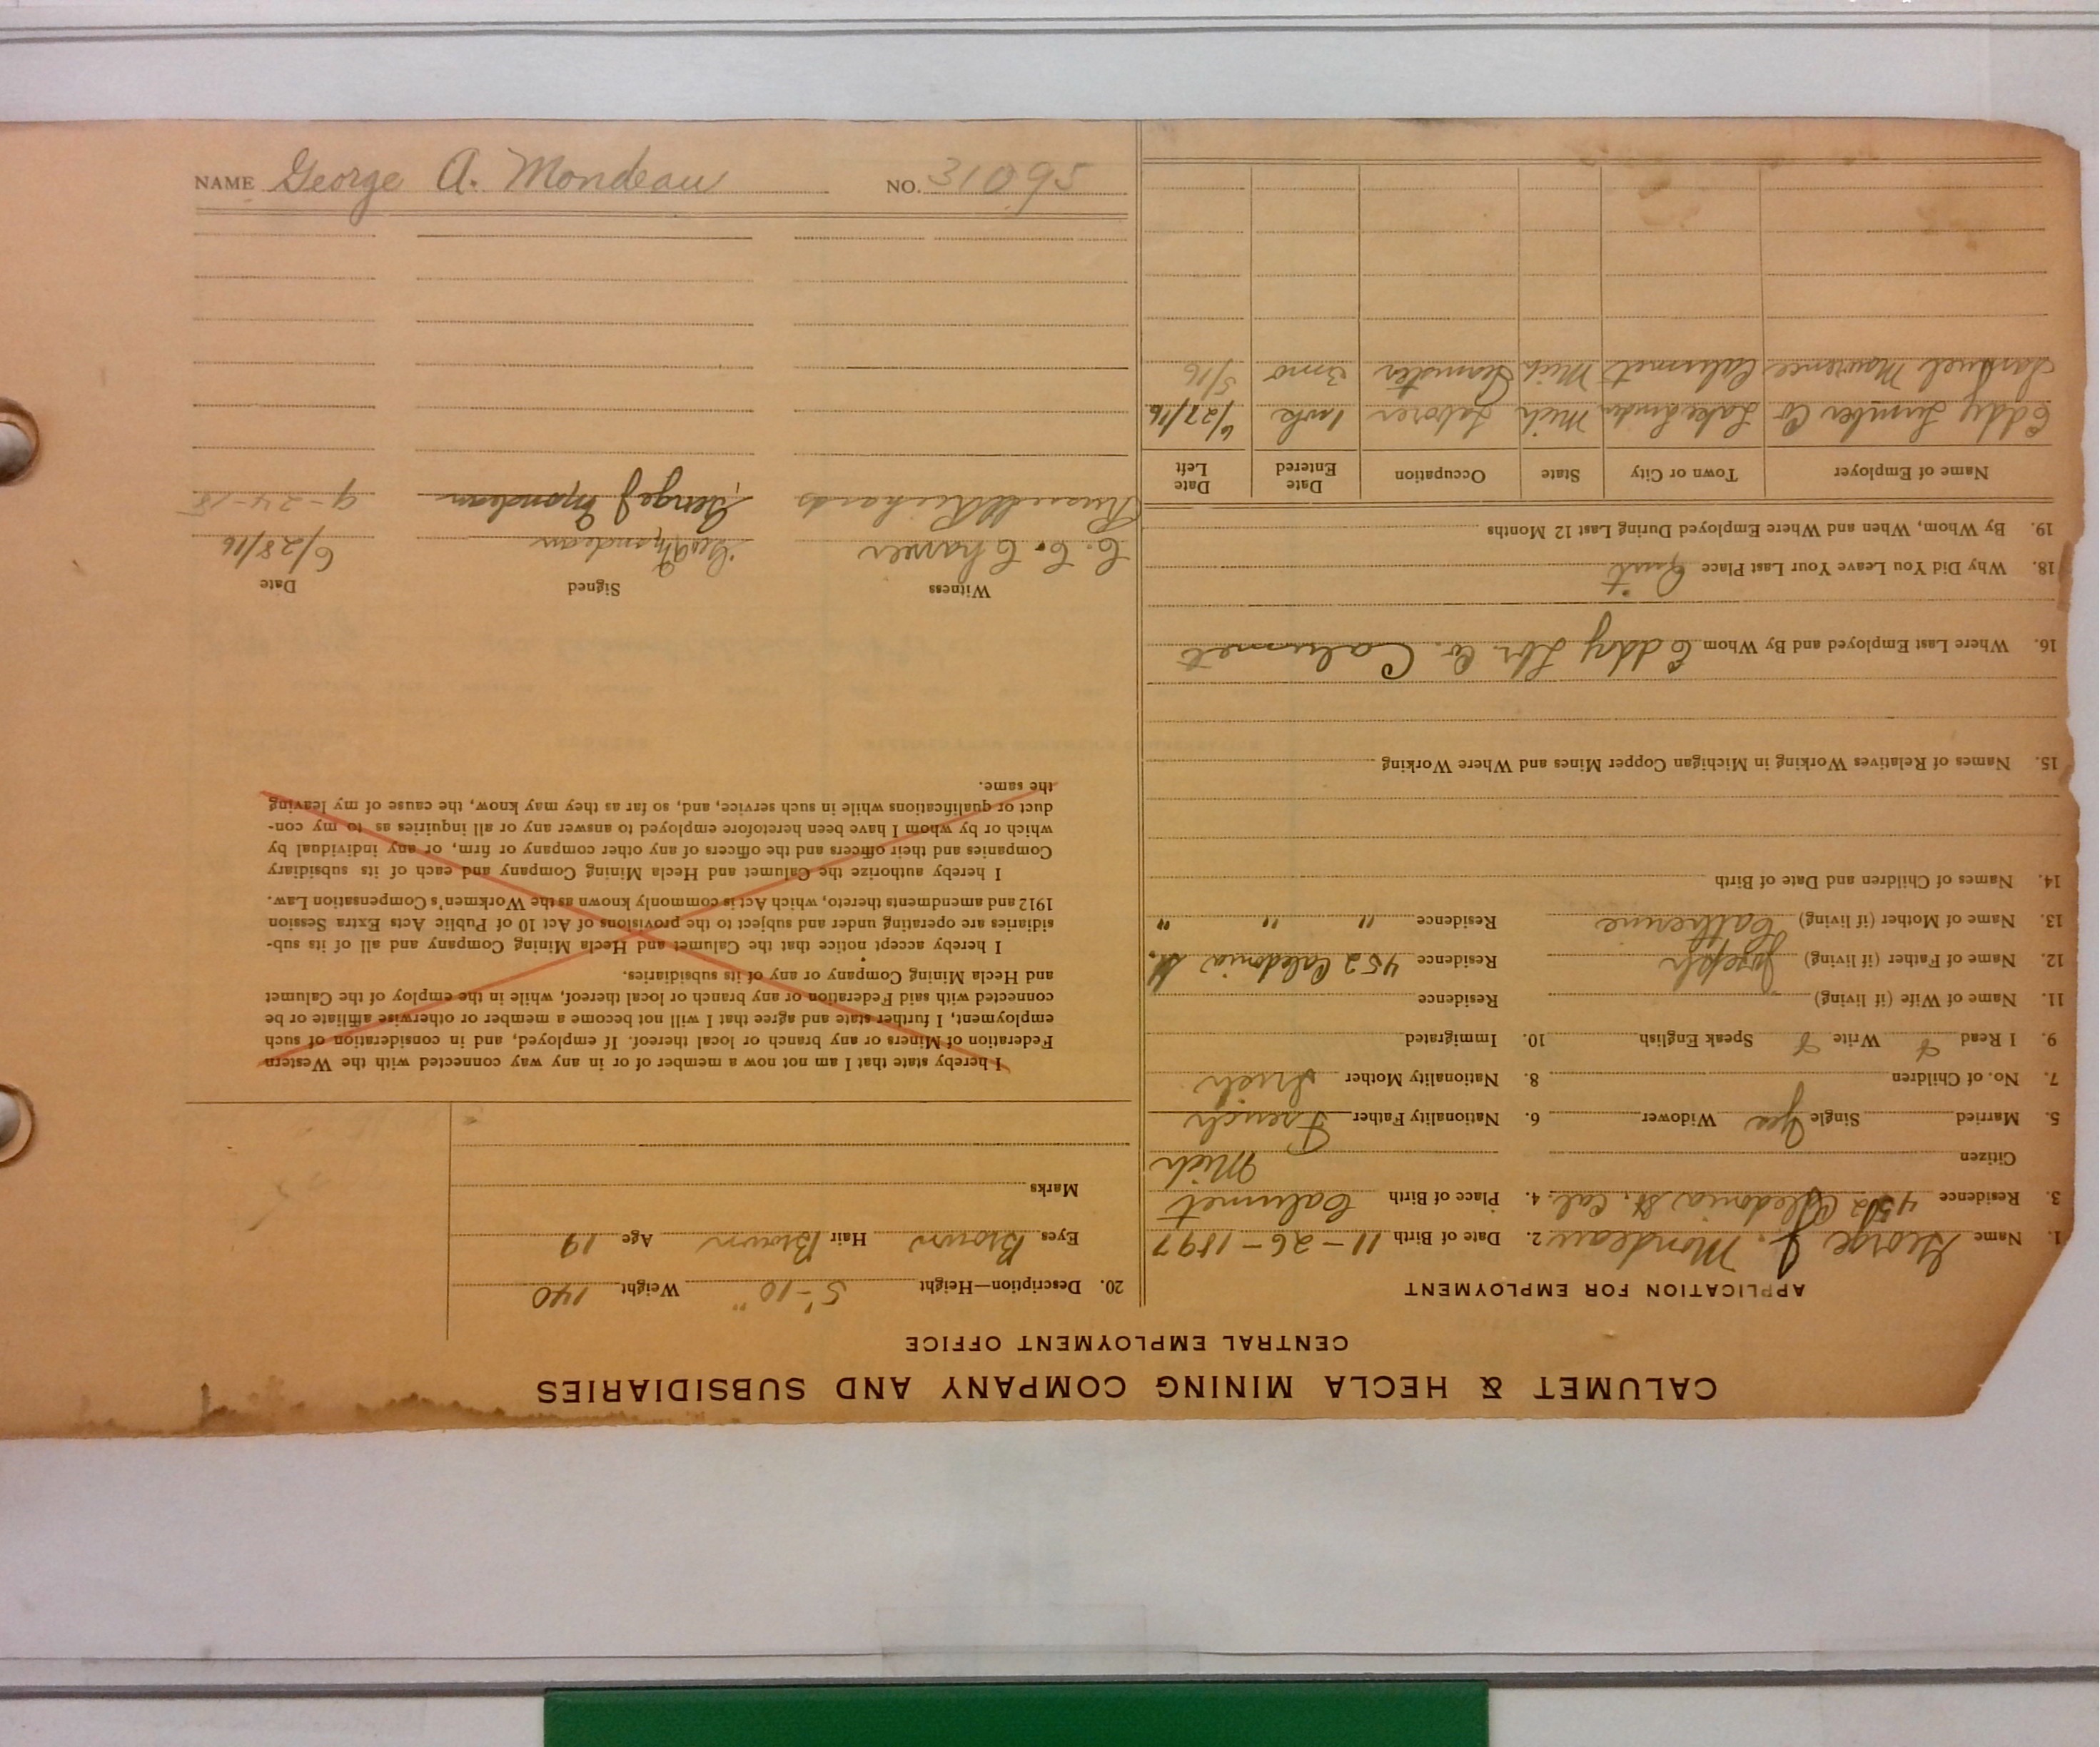 CALUMET & HECLA MINING COMPANY AND SUBSIDIARIES
CENTRAL EMPLOYMENT OFFICE
APPLICATION FOR EMPLOYMENT
1. Name George J. Mondeau 2. Date of Birth 11-26-1897
3. Residence 452 Caledonia St. Cal. 4. Place of Birth Calumet
Citizen Mich
5. Married Single Yes Widower 6. Nationality Father French
7. No. of Children 8. Nationality Mother Irish
9. I Read Write Speak English 10. Immigrated
11. Name of Wife (if living) Residence
12. Name of Father (if living) Joseph Residence 452 Caledonia St.
13. Name of Mother (if living) Catherine Residence " " "
14. Names of Children and Date of Birth
15. Names of Relatives Working in Michigan Copper Mines and Where Working
16. Where Last Employed and By Whom Eddy Lbr Co. Calumet
18. Why Did You Leave Your Last Place Quit
19. By Whom, When and Where Employed During Last 12 Months
Name of Employer Town or City State Occupation Date Entered Date Left
Eddy Lumber Co Lake Linden Mich Laborer 1 wk 6/27/16
Mawrence Calumet Mich Teamster 3 mo 5/16
20. Description—Height 5'-10" Weight 140
Eyes Brown Hair Brown Age 19
Marks
I hereby state that I am not now a member of or in any way connected with the Western
Federation of Miners or any branch or local thereof. If employed, and in consideration of such
employment, I further state and agree that I will not become a member or otherwise affiliate or be
connected with said Federation or any branch or local thereof, while in the employ of the Calumet
and Hecla Mining Company or any of its subsidiaries.
I hereby accept notice that the Calumet and Hecla Mining Company and all of its sub-
sidiaries are operating under and subject to the provisions of Act 10 of Public Acts Extra Session
1912 and amendments thereto, which Act is commonly known as the Workmen's Compensation Law.
I hereby authorize the Calumet and Hecla Mining Company and each of its subsidiary
Companies and their officers and the officers of any other company or firm, or any individual by
which or by whom I have been heretofore employed to answer any or all inquiries as to my con-
duct or qualifications while in such service, and, so far as they may know, the cause of my leaving
the same.
Witness Signed Date
C. C. Geo Mondeau 6/28/16
Russell Richards George J Mondeau 9-24-18
NAME George A. Mondeau NO. 31095